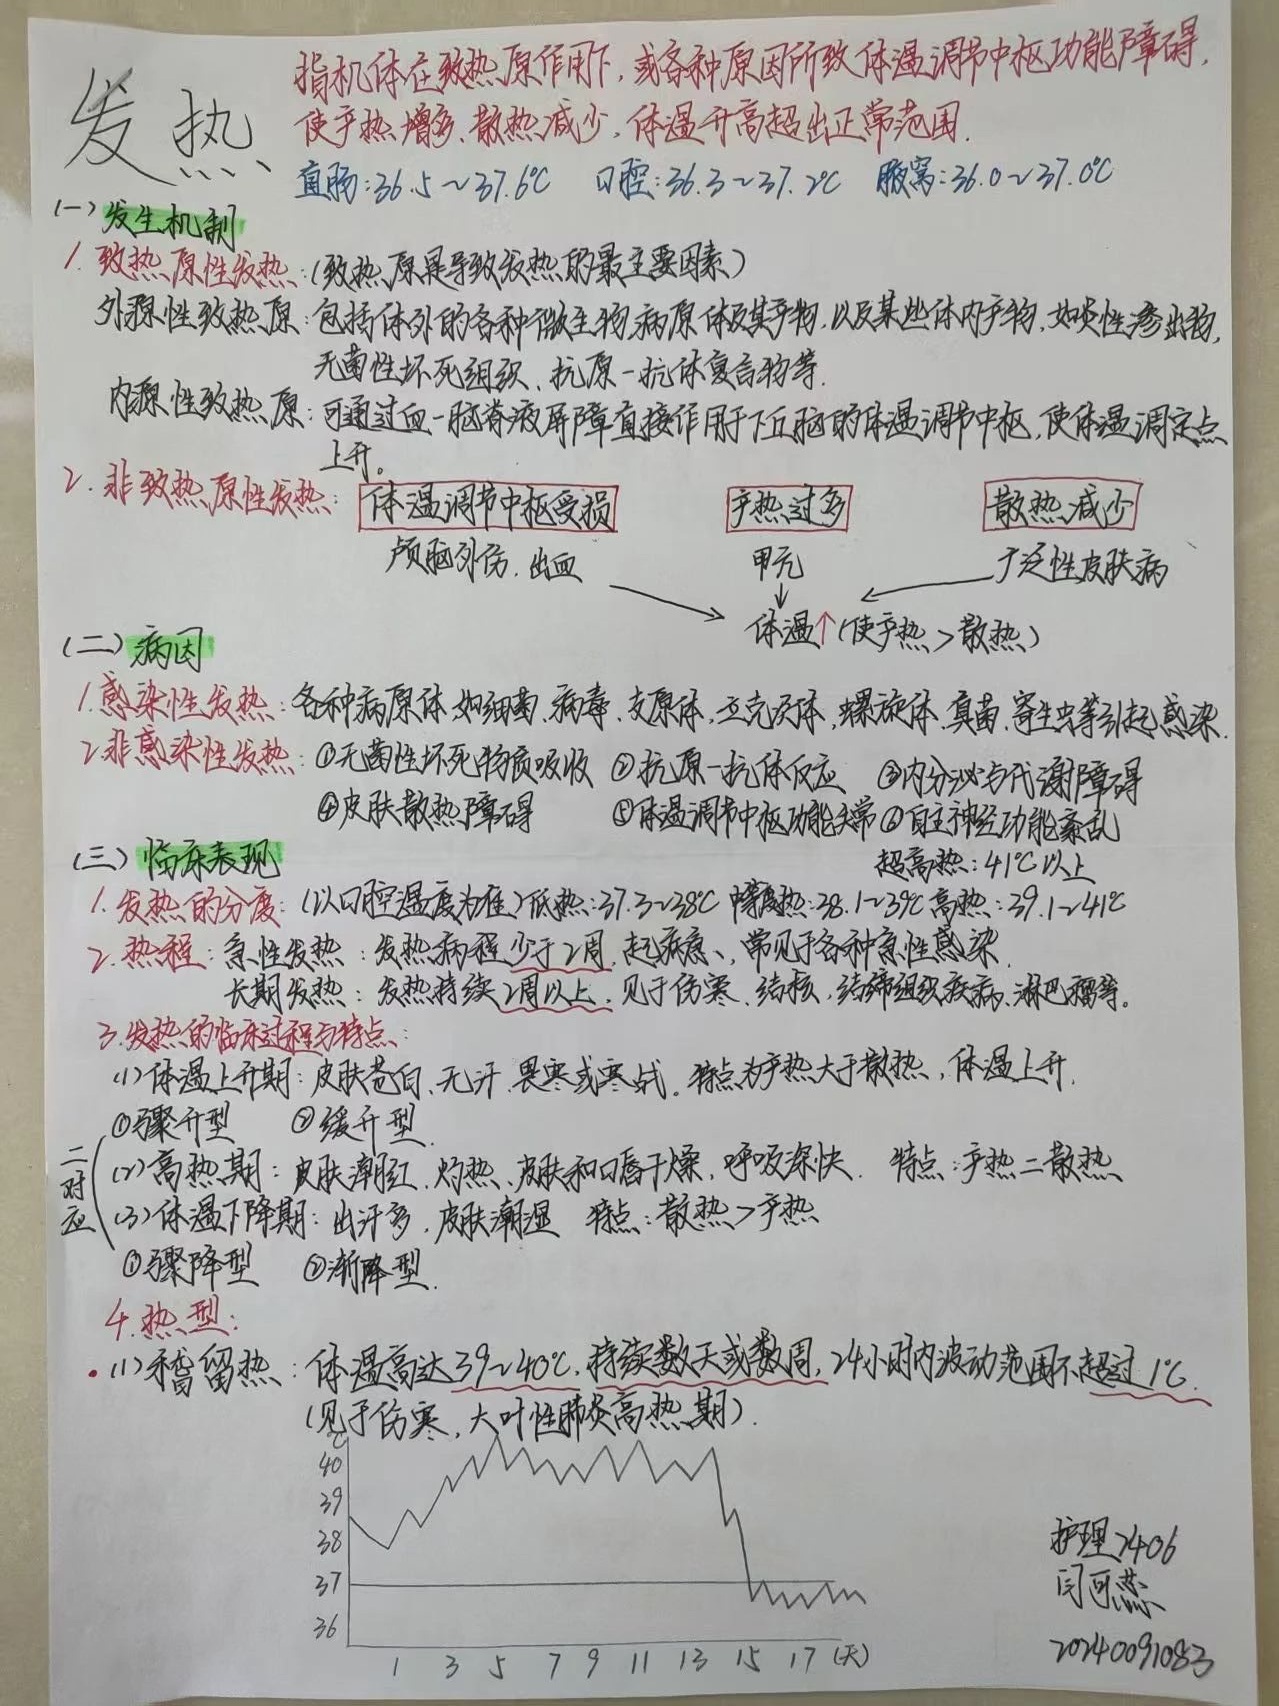 发热
指机体在致热原作用下，或各种原因所致体温调节中枢功能障碍，
使产热增多、散热减少，体温升高超出正常范围.
直肠:36.5～37.6℃ 口腔:36.3～37.2℃ 腋窝:36.0～37.0℃
(一)发生机制
1.致热原性发热:(致热原是导致发热的最主要因素)
外源性致热原:包括体外的各种微生物病原体及其产物,以及某些体内产物,如炎性渗出物,
无菌性坏死组织、抗原-抗体复合物等.
内源性致热原:可通过血-脑脊液屏障直接作用于下丘脑的体温调节中枢,使体温调定点
上升。
2.非致热原性发热: 体温调节中枢受损 产热过多 散热减少
颅脑外伤.出血 甲亢 广泛性皮肤病
体温↑(使产热>散热)
(二)病因
1.感染性发热:各种病原体如细菌、病毒、支原体,立克次体,螺旋体.真菌.寄生虫等引起感染.
2.非感染性发热:①无菌性坏死物质吸收 ②抗原-抗体反应 ③内分泌与代谢障碍
④皮肤散热障碍 ⑤体温调节中枢功能失常 ⑥自主神经功能紊乱
(三)临床表现
超高热:41℃以上
1.发热的分度:(以口腔温度为准)低热:37.3~38℃ 中等度热:38.1~39℃ 高热:39.1~41℃
2.热程:急性发热:发热病程少于2周.起病急、常见于各种急性感染.
长期发热:发热持续2周以上.见于伤寒、结核,结缔组织疾病.淋巴瘤等。
3.发热的临床过程与特点:
(1)体温上升期:皮肤苍白、无汗.畏寒或寒战。特点为产热大于散热,体温上升.
①骤升型 ②缓升型.
二对应
(2)高热期:皮肤潮红.灼热、皮肤和口唇干燥,呼吸深快. 特点:产热=散热
(3)体温下降期:出汗多.皮肤潮湿 特点:散热>产热
①骤降型 ②渐降型.
4.热型:
(1)稽留热:体温高达39~40℃.持续数天或数周,24小时内波动范围不超过1℃.
(见于伤寒,大叶性肺炎高热期).
℃
40
39
38
37
36
1 3 5 7 9 11 13 15 17 (天)
护理2406
闫可燕
20240091083